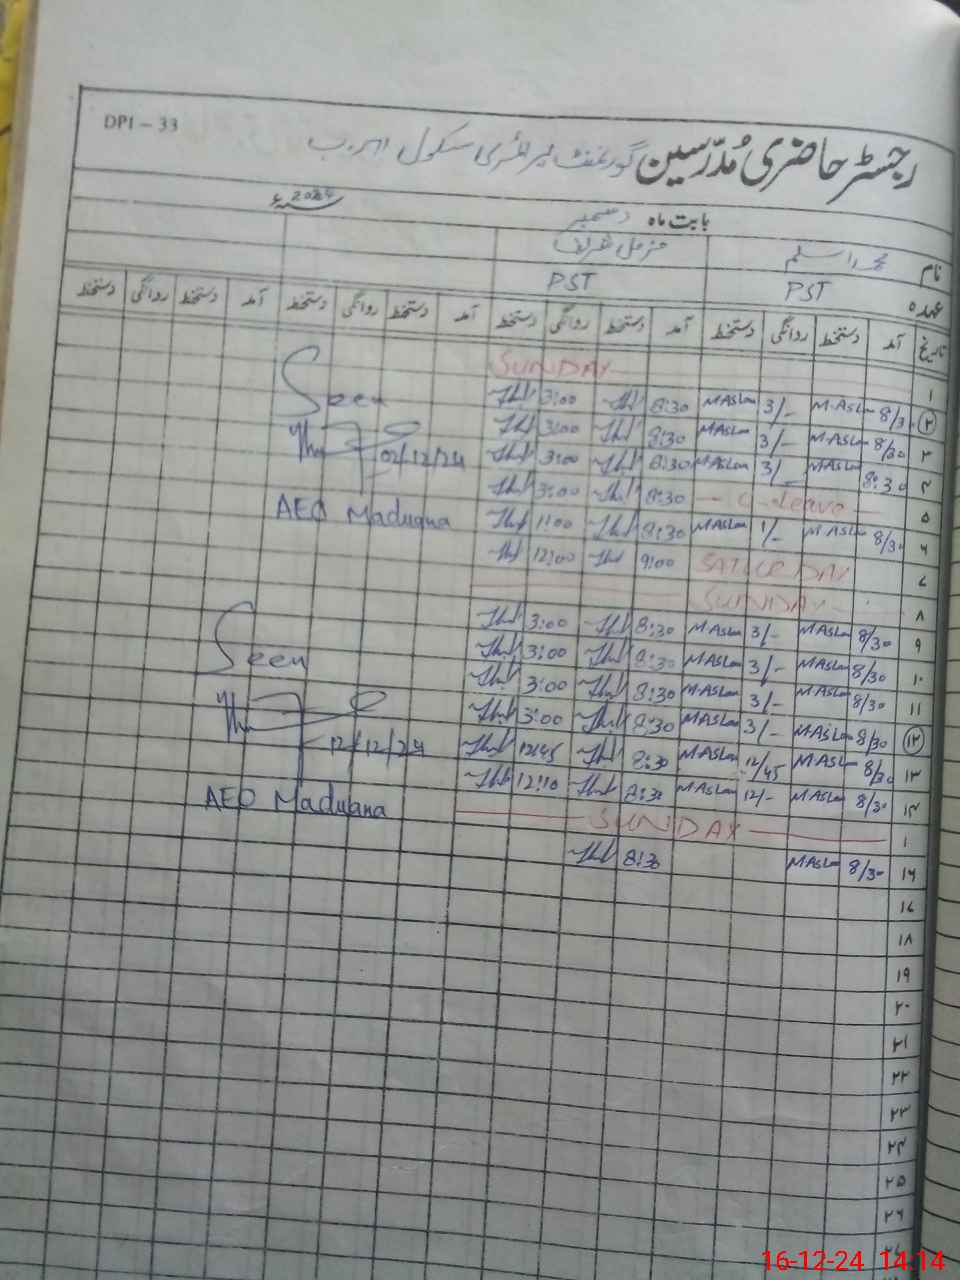 DPI – 33
رجسٹر حاضری مُدرّسین گورنمنٹ پرائمری سکول
بابت ماہ دسمبر 2024ء
نام محمد اسلم مزمل شریف
عہدہ PST PST
تاریخ آمد دستخط روانگی دستخط آمد دستخط روانگی دستخط آمد دستخط روانگی دستخط آمد دستخط روانگی دستخط
۱ SUNDAY
۲ 8/3 M.Aslam 3/- M.Aslam 8:30 3:00
۳ 8/30 M.Aslam 3/- M.Aslam 8:30 3:00
۴ 8:30 M.Aslam 3/- M.Aslam 8:30 3:00
۵ C-Leave 8:30 3:00
۶ 8/30 M.Aslam 1/- M.Aslam 8:30 11:00
۷ SATURDAY 9:00 12:00
۸ SUNDAY
۹ 8/30 M.Aslam 3/- M.Aslam 8:30 3:00
۱۰ 8/30 M.Aslam 3/- M.Aslam 8:30 3:00
۱۱ 8/30 M.Aslam 3/- M.Aslam 8:30 3:00
۱۲ 8/30 M.Aslam 3/- M.Aslam 8:30 3:00
۱۳ 8/30 M.Aslam 12/45 M.Aslam 8:30 12:45
۱۴ 8/30 M.Aslam 12/- M.Aslam 8:30 12:10
۱ SUNDAY
۱۶ 8/30 M.Aslam 8:30
۱۷
۱۸
۱۹
۲۰
۲۱
۲۲
۲۳
۲۴
۲۵
۲۶
۲۷
Seen
02/12/24
AEO Maduana
Seen
12/12/24
AEO Maduana
16-12-24 14:14